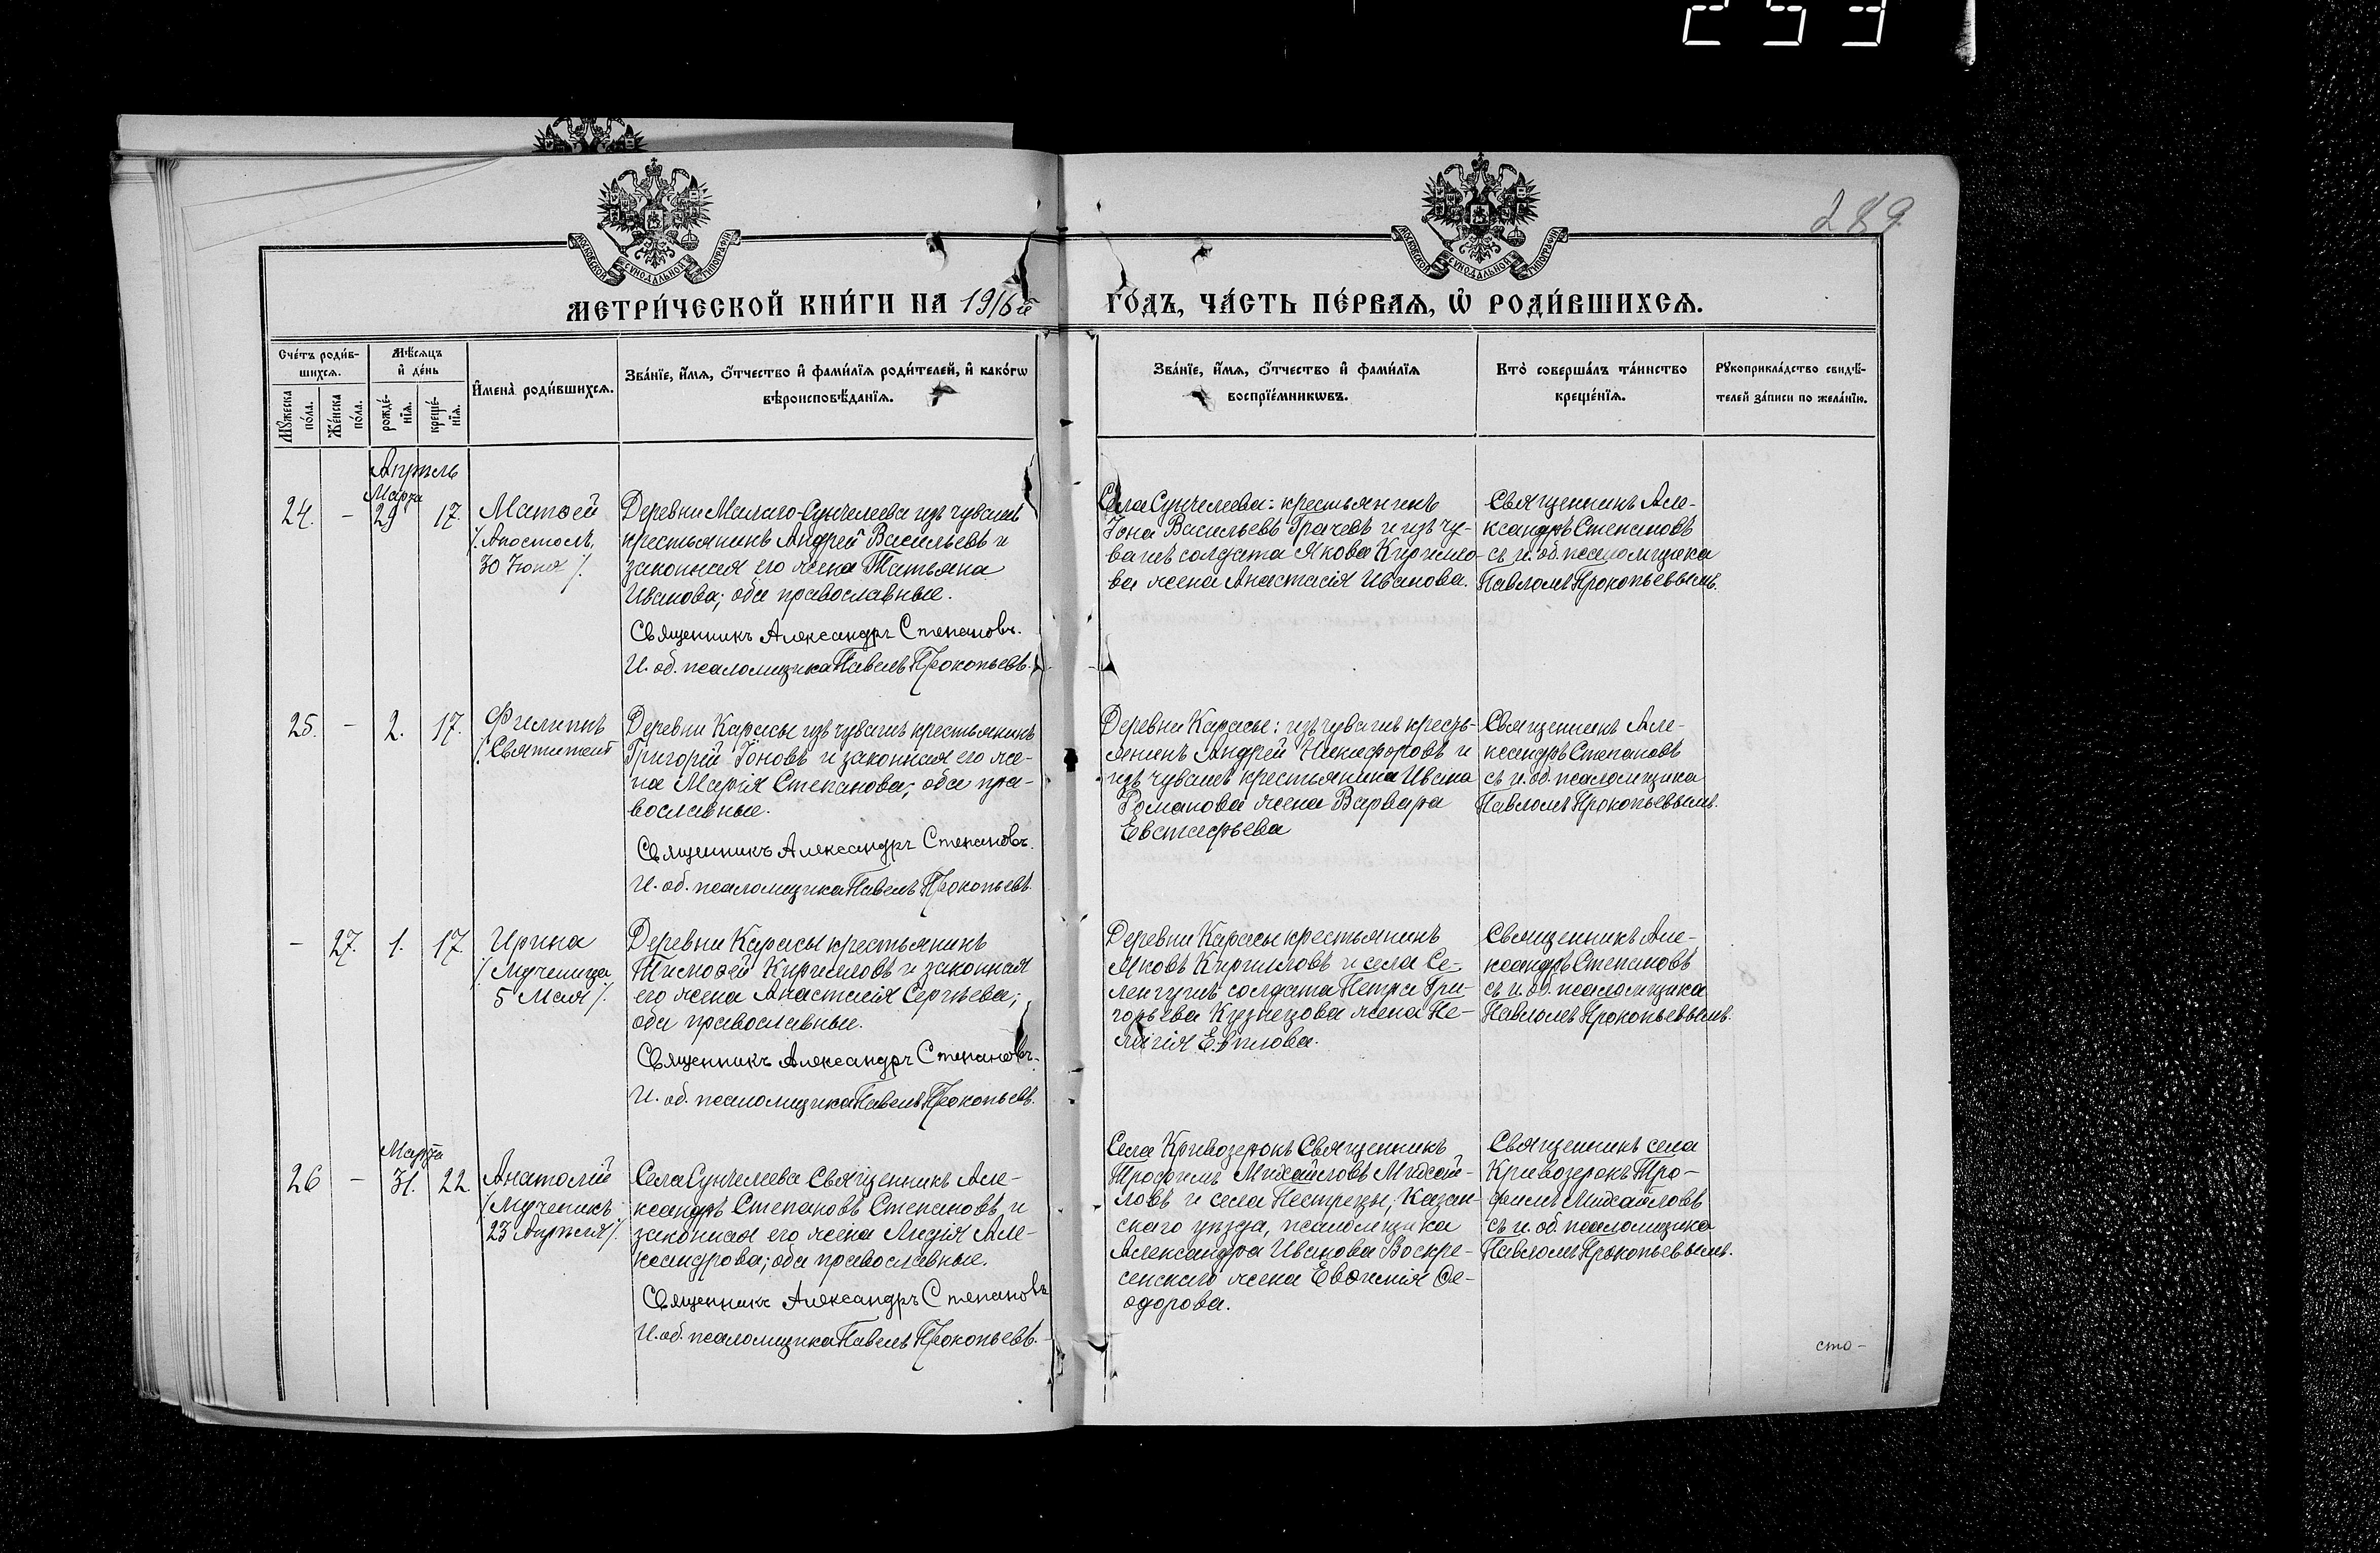 253
289
МОСКОВСКОЙ СѴНОДАЛЬНОЙ ТИПОГРАФІИ
МОСКОВСКОЙ СѴНОДАЛЬНОЙ ТИПОГРАФІИ
МЕТРИ́ЧЕСКОЙ КНИ́ГИ НА 1916й ГО́ДЪ, ЧА́СТЬ ПЕ́РВАѦ, Ѡ҆ РОДИ́ВШИХСѦ.
Сче́тъ роди́в-
шихсѧ.
Мꙋ́жеска по́ла.
Же́нска по́ла.
Мѣ́сѧцъ
и҆ де́нь
рожде́-
нїѧ.
креще́-
нїѧ.
И҆мена̀ роди́вшихсѧ.
Зва́нїе, и҆́мѧ, ѻ҆́тчество и҆ фами́лїѧ роди́телей, и҆ како́гѡ
вѣроисповѣ́данїѧ.
Зва́нїе, и҆́мѧ, ѻ҆́тчество и҆ фами́лїѧ
воспрїе́мникѡвъ.
Кто̀ соверша́лъ та́инство
креще́нїѧ.
Рꙋкоприкла́дство свидѣ́-
телей за́писи по жела́нїю.
Апрѣль
Марта
24. - 29 17.
Матѳей
/. Апостолъ,
30 Іюня /.
Деревни Малаго-Сунчелеева изъ чувашъ
крестьянинъ Андрей Васильевъ и
законная его жена Татьяна
Иванова; оба православные.
Священникъ Александръ Степановъ.
И. об. псаломщика Павелъ Прокопьевъ.
Села Сунчелеева: крестьянинъ
Іона Васильевъ Грачевъ и изъ чу-
вашъ солдата Якова Кирилло-
ва жена Анастасія Иванова.
Священникъ Але-
ксандръ Степановъ
съ и. об. псаломщика
Павломъ Прокопьевымъ.
25. - 2. 17.
Филиппъ
/. Святитель
Деревни Карасы изъ чувашъ крестьянинъ
Григорій Іоновъ и законная его же-
на Марія Степанова; оба пра-
вославные.
Священникъ Александръ Степановъ.
И. об. псаломщика Павелъ Прокопьевъ.
Деревни Карасы: изъ чувашъ кресть-
янинъ Андрей Никифоровъ и
изъ чувашъ крестьянина Ивана
Романова жена Варвара
Евстафьева
Священникъ Але-
ксандръ Степановъ
съ и. об. псаломщика
Павломъ Прокопьевымъ.
- 27. 1. 17
Ирина
/. Мученица
5 Мая /.
Деревни Карасы крестьянинъ
Тимоѳей Кирилловъ и законная
его жена Анастасія Сергѣева;
оба православные.
Священникъ Александръ Степановъ.
И. об. псаломщика Павелъ Прокопьевъ.
Деревни Карасы крестьянинъ
Яковъ Кирилловъ и села Се-
ленгушъ солдата Петра Гри-
горьева Кузнецова жена Пе-
лагія
Священникъ Але-
ксандръ Степановъ
съ и. об. псаломщика
Павломъ Прокопьевымъ.
Марта
26 - 31. 22
Анатолій
/. Мученикъ
23 Апрѣля /.
Села Сунчелеева Священникъ Але-
ксандръ Степановъ Степановъ и
законная его жена Лидія Але-
ксандрова; оба православные.
Священникъ Александръ Степановъ
И. об. псаломщика Павелъ Прокопьевъ.
Села Кривозерокъ Священникъ
Трофимъ Михайловъ Михай-
ловъ и села Пестрецы, Казан-
скаго уѣзда, псаломщика
Александра Иванова Воскре-
сенскаго жена Евѳимія Ѳе-
одорова.
Священникъ села
Кривозерокъ Тро-
фимъ Михайловъ
съ и. об. псаломщика
Павломъ Прокопьевымъ.
сто-